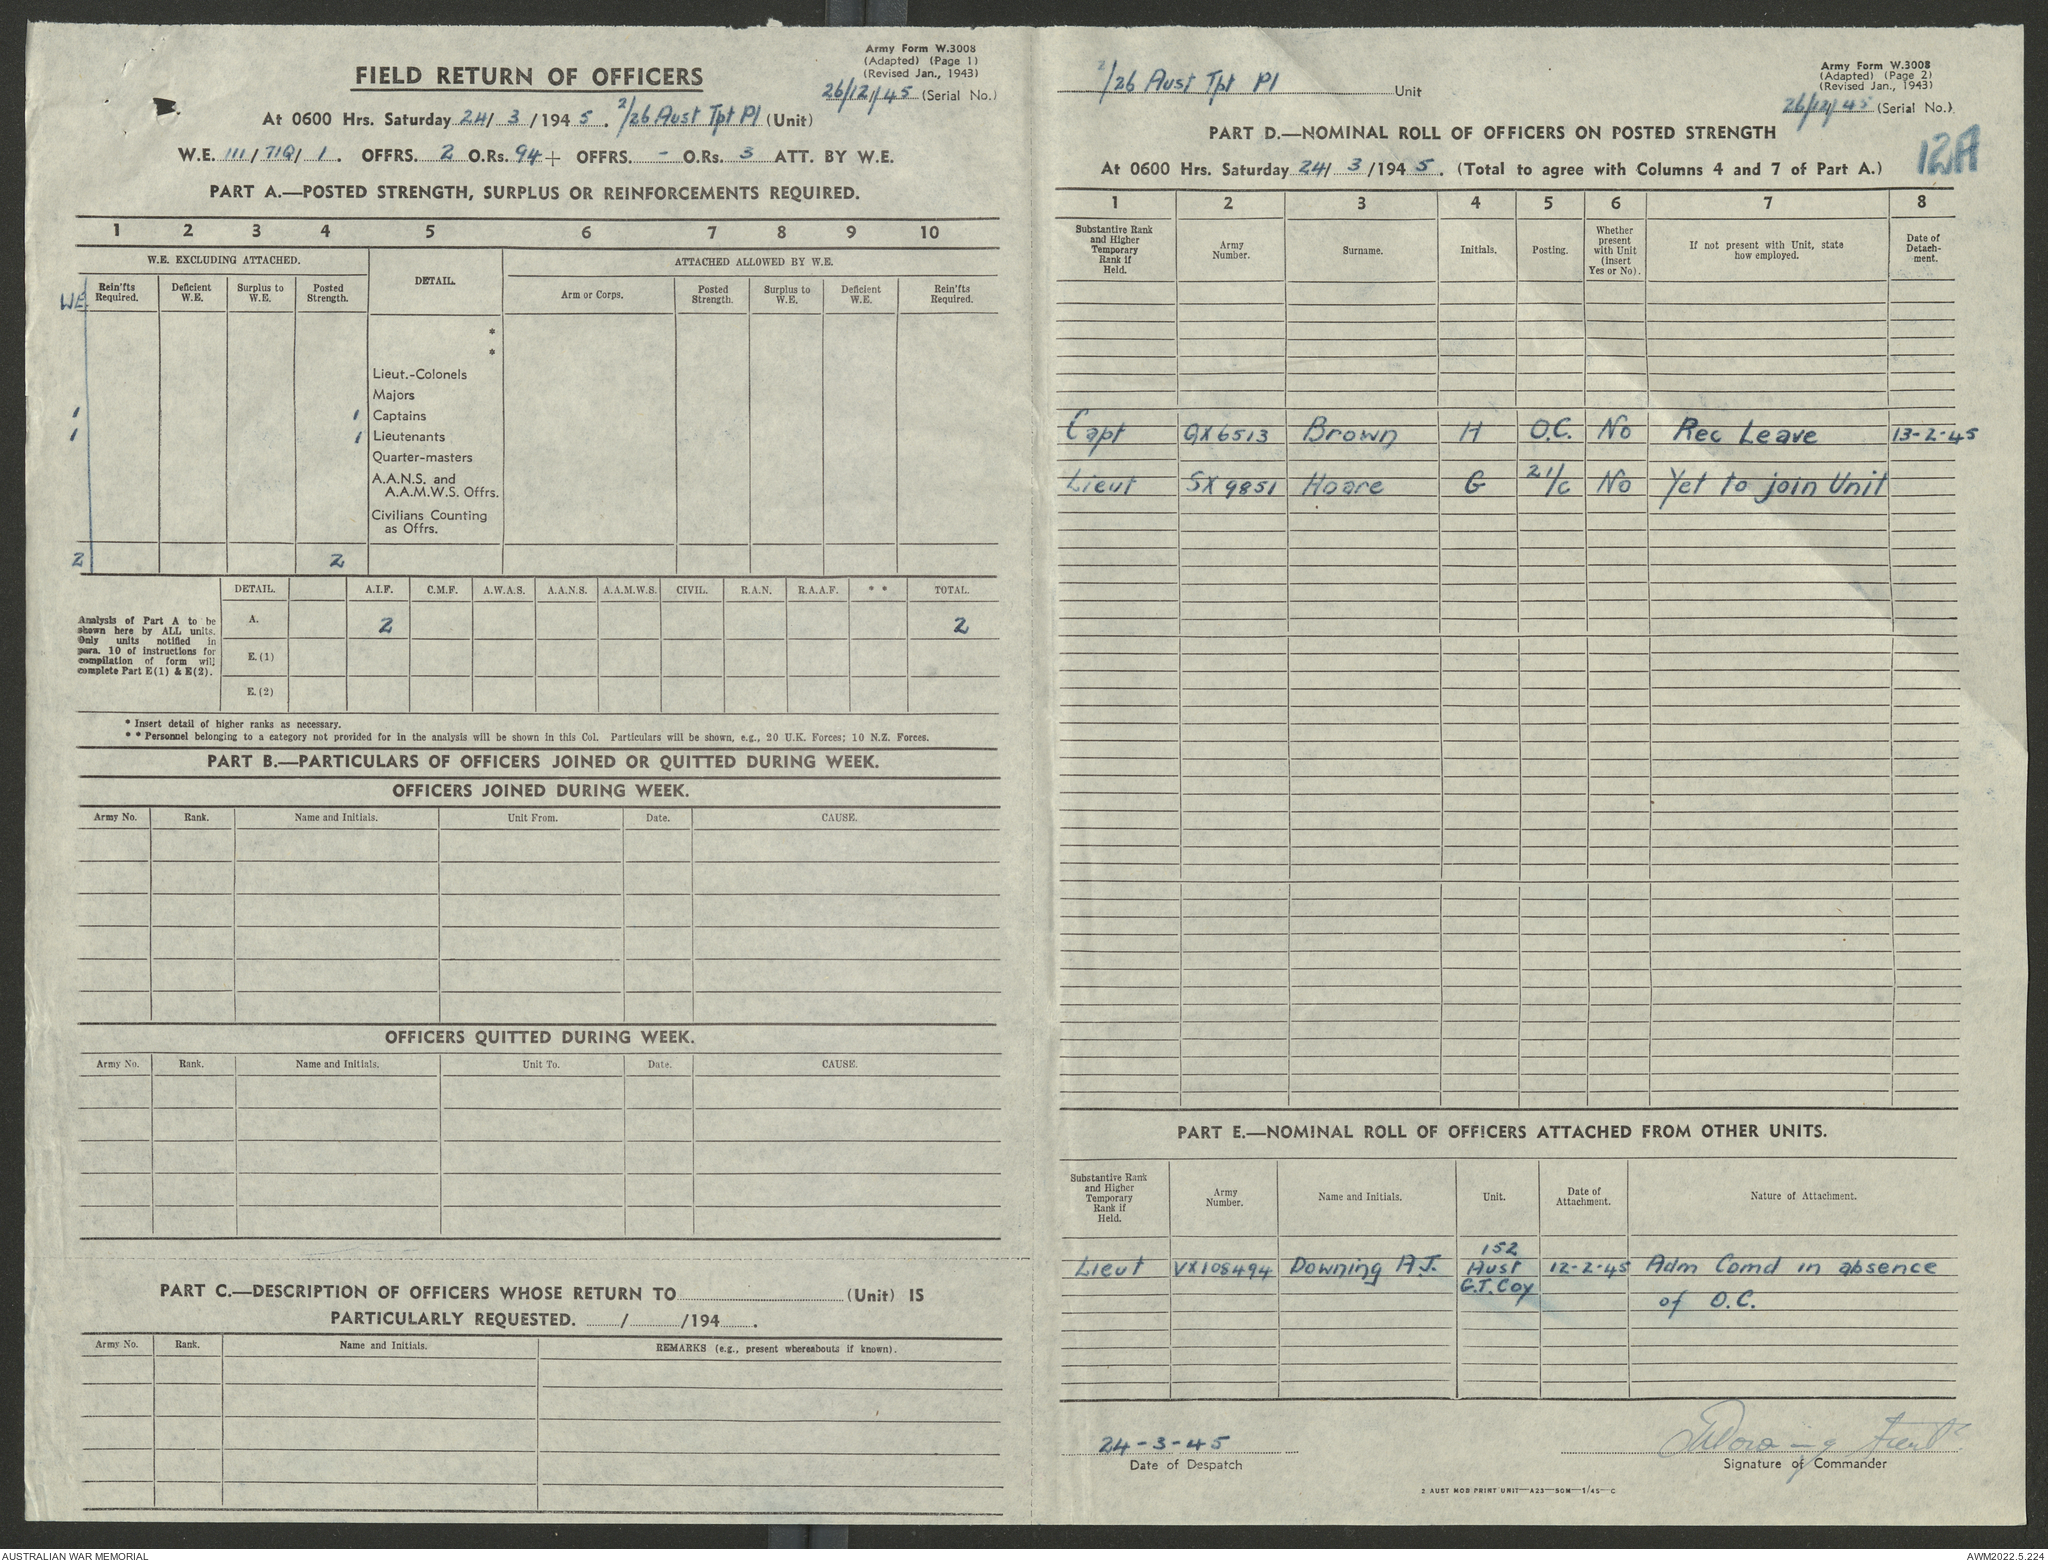 Army Form W.3008
(Adapted) (Page 1)
(Revised Jan., 1943)
FIELD RETURN OF OFFICERS
26/12/45 (Serial No.)
At 0600 Hrs. Saturday 24/3/1945. 2/26 Aust Tpt Pl (Unit)
W.E. 111/71Q/1. OFFRS. 2 O.Rs. 94 + OFFRS. - O.Rs. 3 ATT. BY W.E.
PART A.—POSTED STRENGTH, SURPLUS OR REINFORCEMENTS REQUIRED.
1 2 3 4 5 6 7 8 9 10
W.E. EXCLUDING ATTACHED. DETAIL. ATTACHED ALLOWED BY W.E.
WE Rein'fts Required. Deficient W.E. Surplus to W.E. Posted Strength. Arm or Corps. Posted Strength. Surplus to W.E. Deficient W.E. Rein'fts Required.
*
*
Lieut.-Colonels
Majors
1 1 Captains
1 1 Lieutenants
Quarter-masters
A.A.N.S. and
A.A.M.W.S. Offrs.
Civilians Counting
as Offrs.
2 2
DETAIL. A.I.F. C.M.F. A.W.A.S. A.A.N.S. A.A.M.W.S. CIVIL. R.A.N. R.A.A.F. * * TOTAL.
Analysis of Part A to be
shown here by ALL units.
Only units notified in
para. 10 of instructions for
compilation of form will
complete Part E(1) & E(2).
A. 2 2
E.(1)
E.(2)
* Insert detail of higher ranks as necessary.
* * Personnel belonging to a category not provided for in the analysis will be shown in this Col. Particulars will be shown, e.g., 20 U.K. Forces; 10 N.Z. Forces.
PART B.—PARTICULARS OF OFFICERS JOINED OR QUITTED DURING WEEK.
OFFICERS JOINED DURING WEEK.
Army No. Rank. Name and Initials. Unit From. Date. CAUSE.
OFFICERS QUITTED DURING WEEK.
Army No. Rank. Name and Initials. Unit To. Date. CAUSE.
PART C.—DESCRIPTION OF OFFICERS WHOSE RETURN TO (Unit) IS
PARTICULARLY REQUESTED. / /194 .
Army No. Rank. Name and Initials. REMARKS (e.g., present whereabouts if known).
Army Form W.3008
(Adapted) (Page 2)
(Revised Jan., 1943)
2/26 Aust Tpt Pl Unit
26/12/45 (Serial No.)
PART D.—NOMINAL ROLL OF OFFICERS ON POSTED STRENGTH
12A
At 0600 Hrs. Saturday 24/3/1945. (Total to agree with Columns 4 and 7 of Part A.)
1 2 3 4 5 6 7 8
Substantive Rank and Higher Temporary Rank if Held. Army Number. Surname. Initials. Posting. Whether present with Unit (Insert Yes or No). If not present with Unit, state how employed. Date of Detach-ment.
Capt QX6513 Brown H O.C. No Rec Leave 13-2-45
Lieut SX9851 Hoare G 2I/c No Yet to join Unit
PART E.—NOMINAL ROLL OF OFFICERS ATTACHED FROM OTHER UNITS.
Substantive Rank and Higher Temporary Rank if Held. Army Number. Name and Initials. Unit. Date of Attachment. Nature of Attachment.
Lieut VX108494 Downing A.J. 152 Aust G.T. Coy 12-2-45 Adm Comd in absence
of O.C.
24-3-45
Date of Despatch
Signature of Commander
2 AUST MOB PRINT UNIT—A23—50M—1/45—C
AUSTRALIAN WAR MEMORIAL
AWM2022.5.224